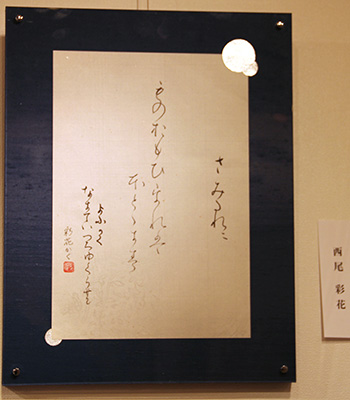 さみたれに
ものおもひをれは
ほとゝきす
よふかく
なきていつちゆくらむ
彩花かく
西尾 彩花